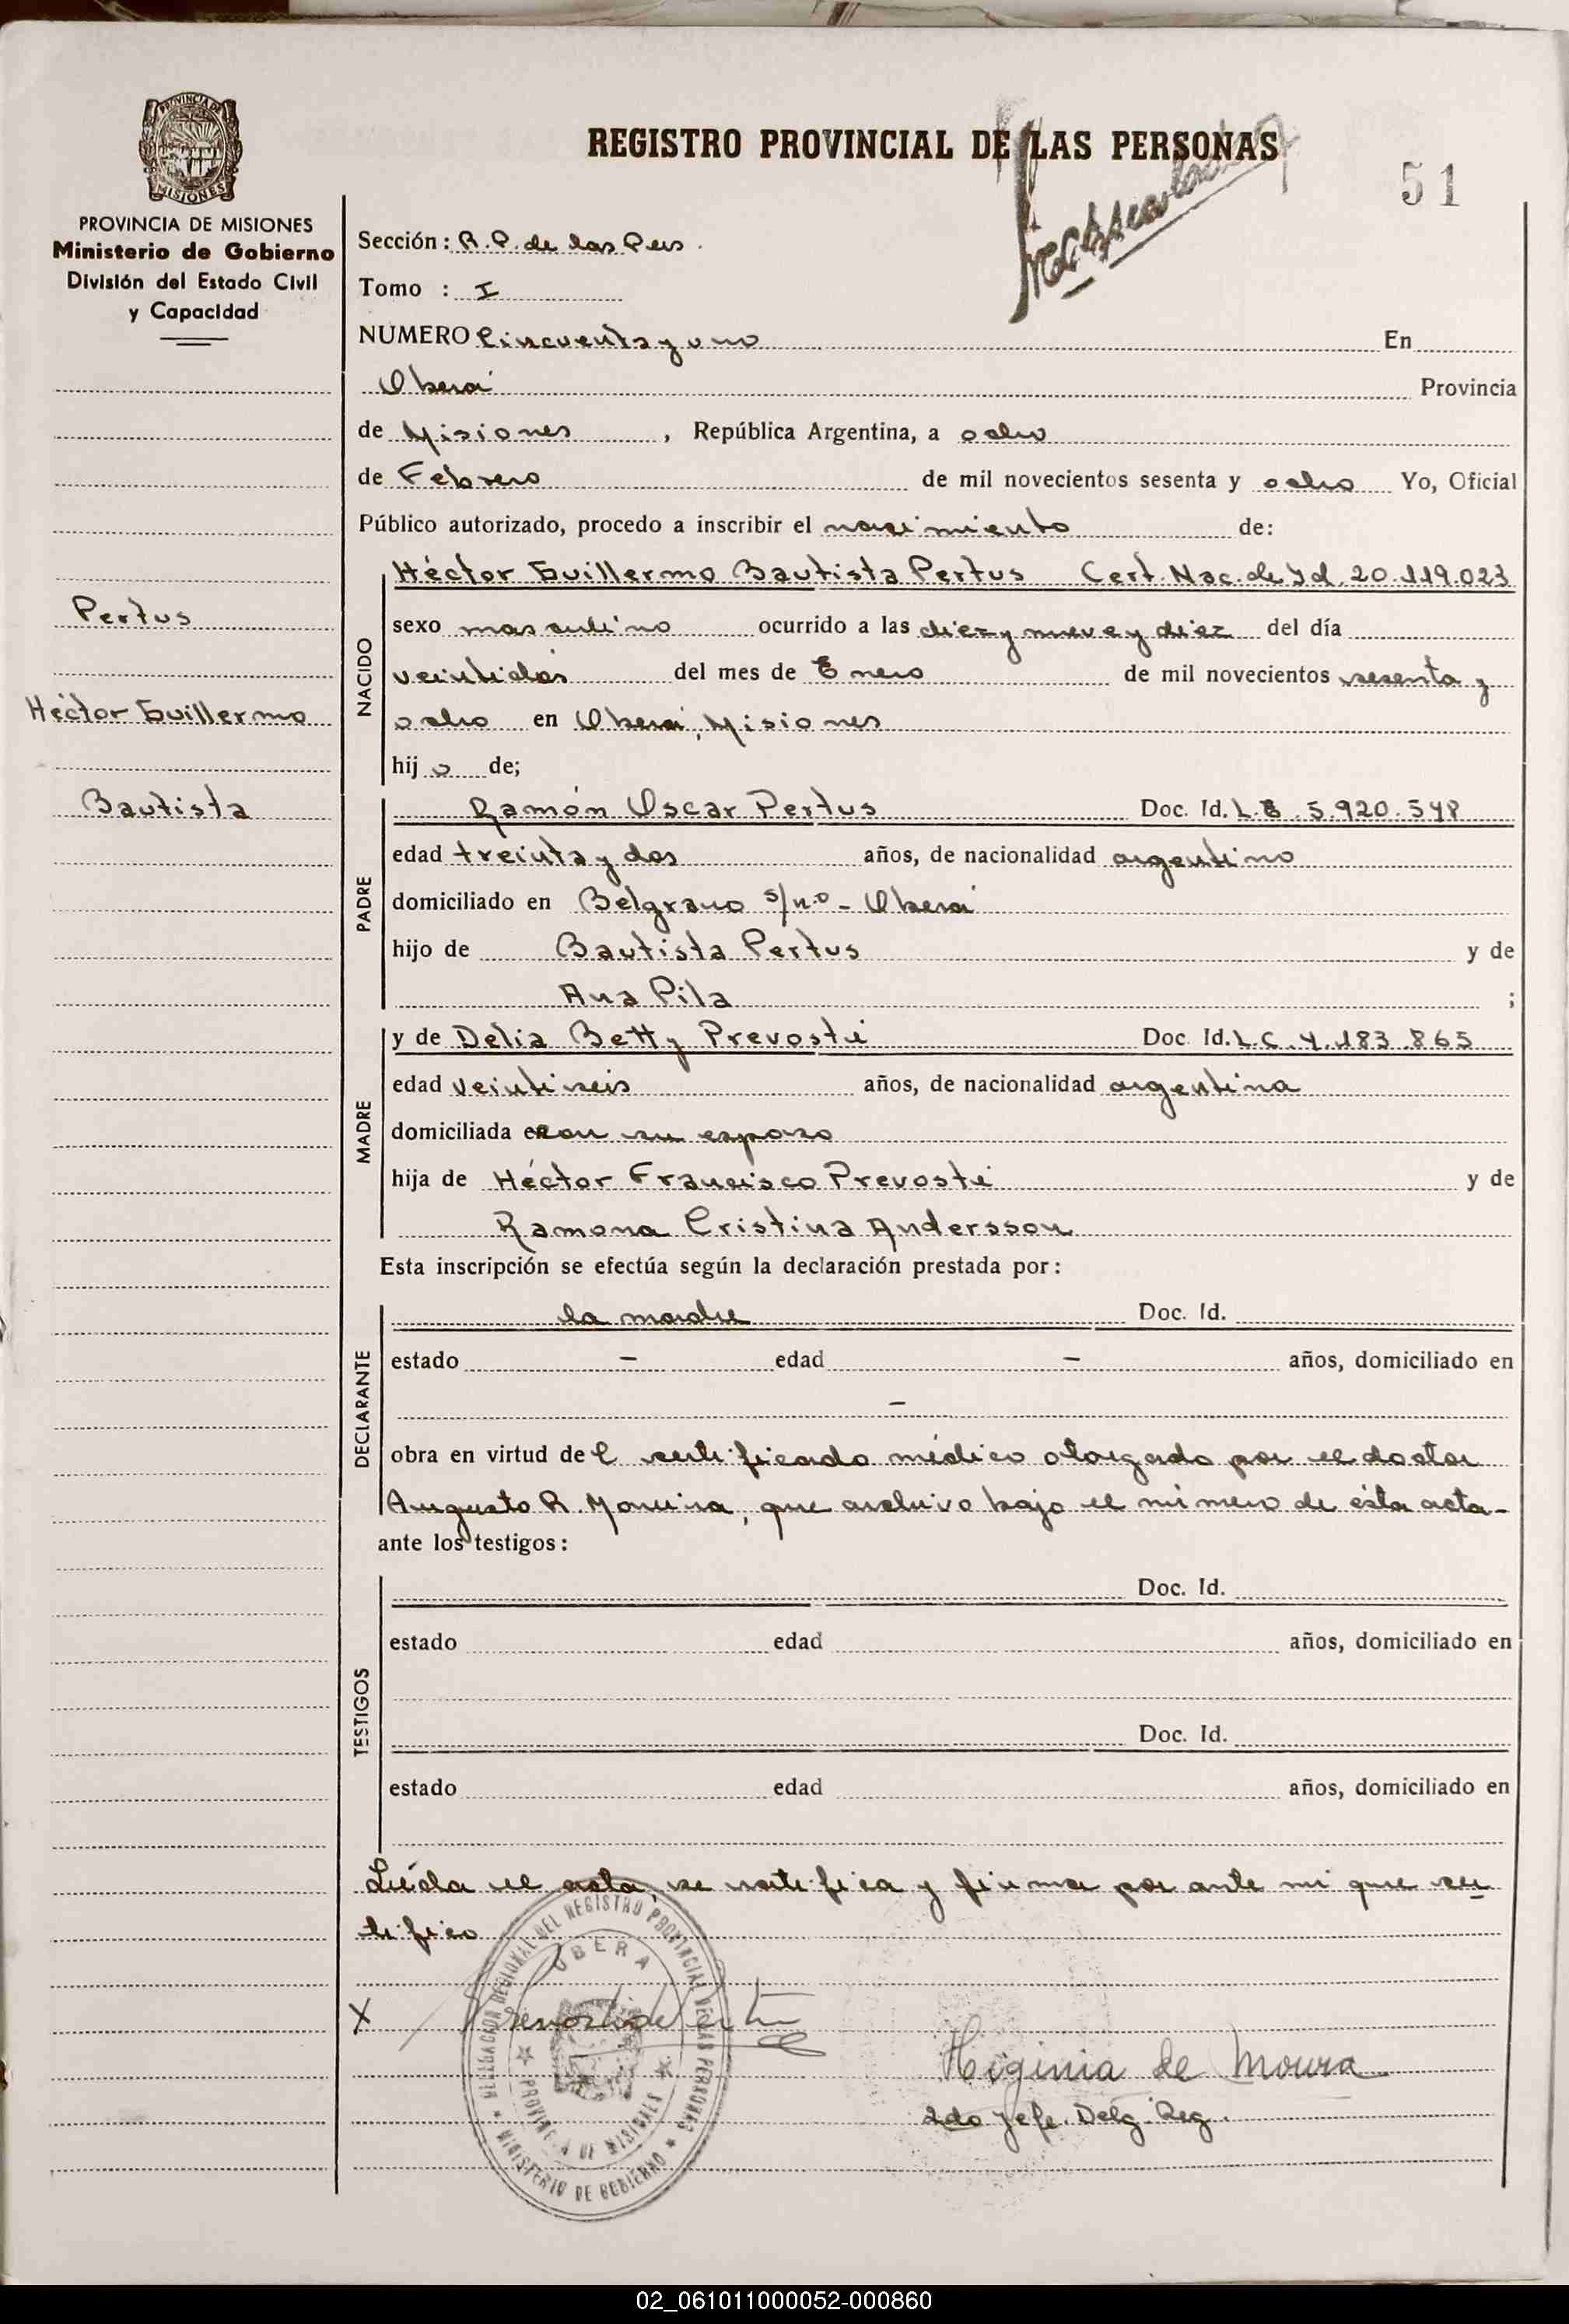 REGISTRO PROVINCIAL DE LAS PERSONAS
51
PROVINCIA DE MISIONES
Ministerio de Gobierno
División del Estado Civil
y Capacidad
Sección: R.P. de las Pers.
Tomo : I
NUMERO Cincuenta y uno En
Oberá Provincia
de Misiones, República Argentina, a ocho
de Febrero de mil novecientos sesenta y ocho Yo, Oficial
Público autorizado, procedo a inscribir el nacimiento de:
Pertus
Héctor Guillermo
Bautista
NACIDO
Héctor Guillermo Bautista Pertus Cert. Nac. de Id. 20.119.023
sexo masculino ocurrido a las diez y nueve y diez del día
veintidós del mes de Enero de mil novecientos sesenta y
ocho en Oberá, Misiones
hij o de;
PADRE
Ramón Oscar Pertus Doc. Id. L.E. 5.920.548
edad treinta y dos años, de nacionalidad argentino
domiciliado en Belgrano s/n.o - Oberá
hijo de Bautista Pertus y de
Ana Pila ;
MADRE
y de Delia Betty Prevosti Doc. Id. L.C. 4.183.865
edad veintiseis años, de nacionalidad argentina
domiciliada con su esposo
hija de Héctor Francisco Prevosti y de
Ramona Cristina Andersson
Esta inscripción se efectúa según la declaración prestada por:
DECLARANTE
la madre Doc. Id.
estado - edad - años, domiciliado en
-
obra en virtud del certificado médico otorgado por el doctor
Augusto R. Moreira, que archivo bajo el número de ésta acta-
ante los testigos:
TESTIGOS
Doc. Id.
estado edad años, domiciliado en
Doc. Id.
estado edad años, domiciliado en
Leída el acta, se ratifica y firma por ante mi que cer
tifico
DELEGACION REGIONAL DEL REGISTRO PROVINCIAL DE LAS PERSONAS
OBERA
PROVINCIA DE MISIONES
MINISTERIO DE GOBIERNO
X Prevosti de Pertus
Higinia de Moura
2do Jefe. Delg. Reg.
02_061011000052-000860